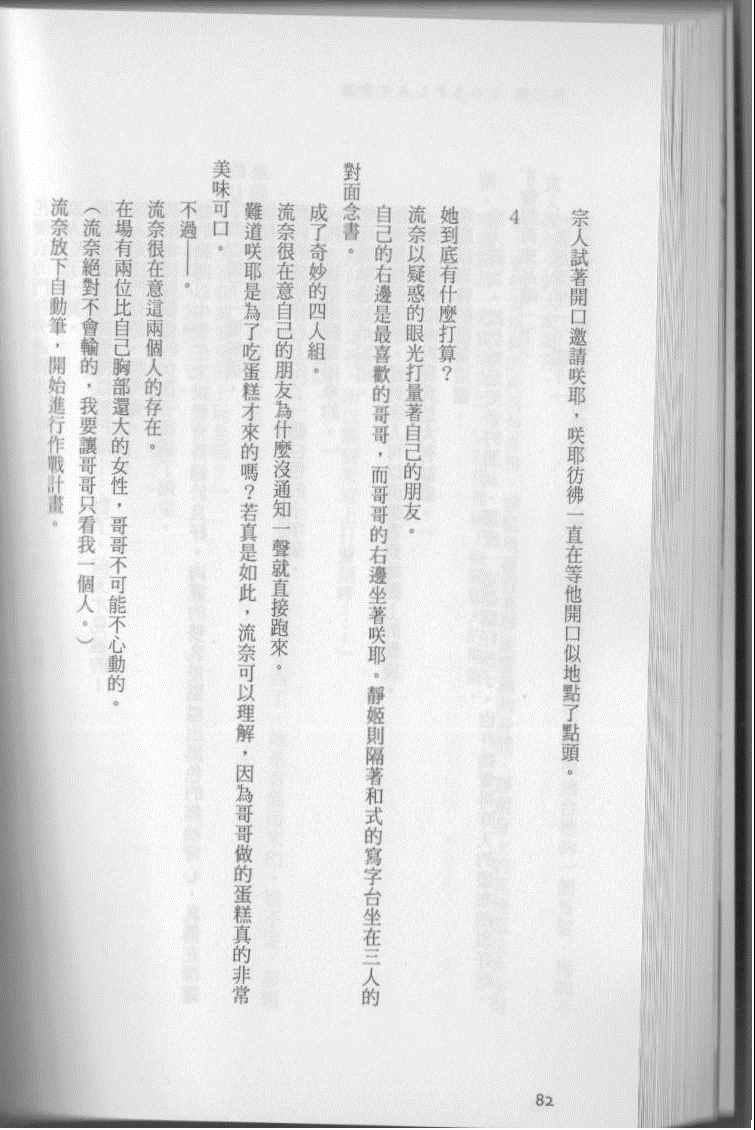 宗人試著開口邀請咲耶，咲耶彷彿一直在等他開口似地點了點頭。
4
她到底有什麼打算？
流奈以疑惑的眼光打量著自己的朋友。
自己的右邊是最喜歡的哥哥，而哥哥的右邊坐著咲耶。靜姬則隔著和式的寫字台坐在三人的
對面念書。
成了奇妙的四人組。
流奈很在意自己的朋友為什麼沒通知一聲就直接跑來。
難道咲耶是為了吃蛋糕才來的嗎？若真是如此，流奈可以理解，因為哥哥做的蛋糕真的非常
美味可口。
不過——。
流奈很在意這兩個人的存在。
在場有兩位比自己胸部還大的女性，哥哥不可能不心動的。
（流奈絕對不會輸的，我要讓哥哥只看我一個人。）
流奈放下自動筆，開始進行作戰計畫。
82